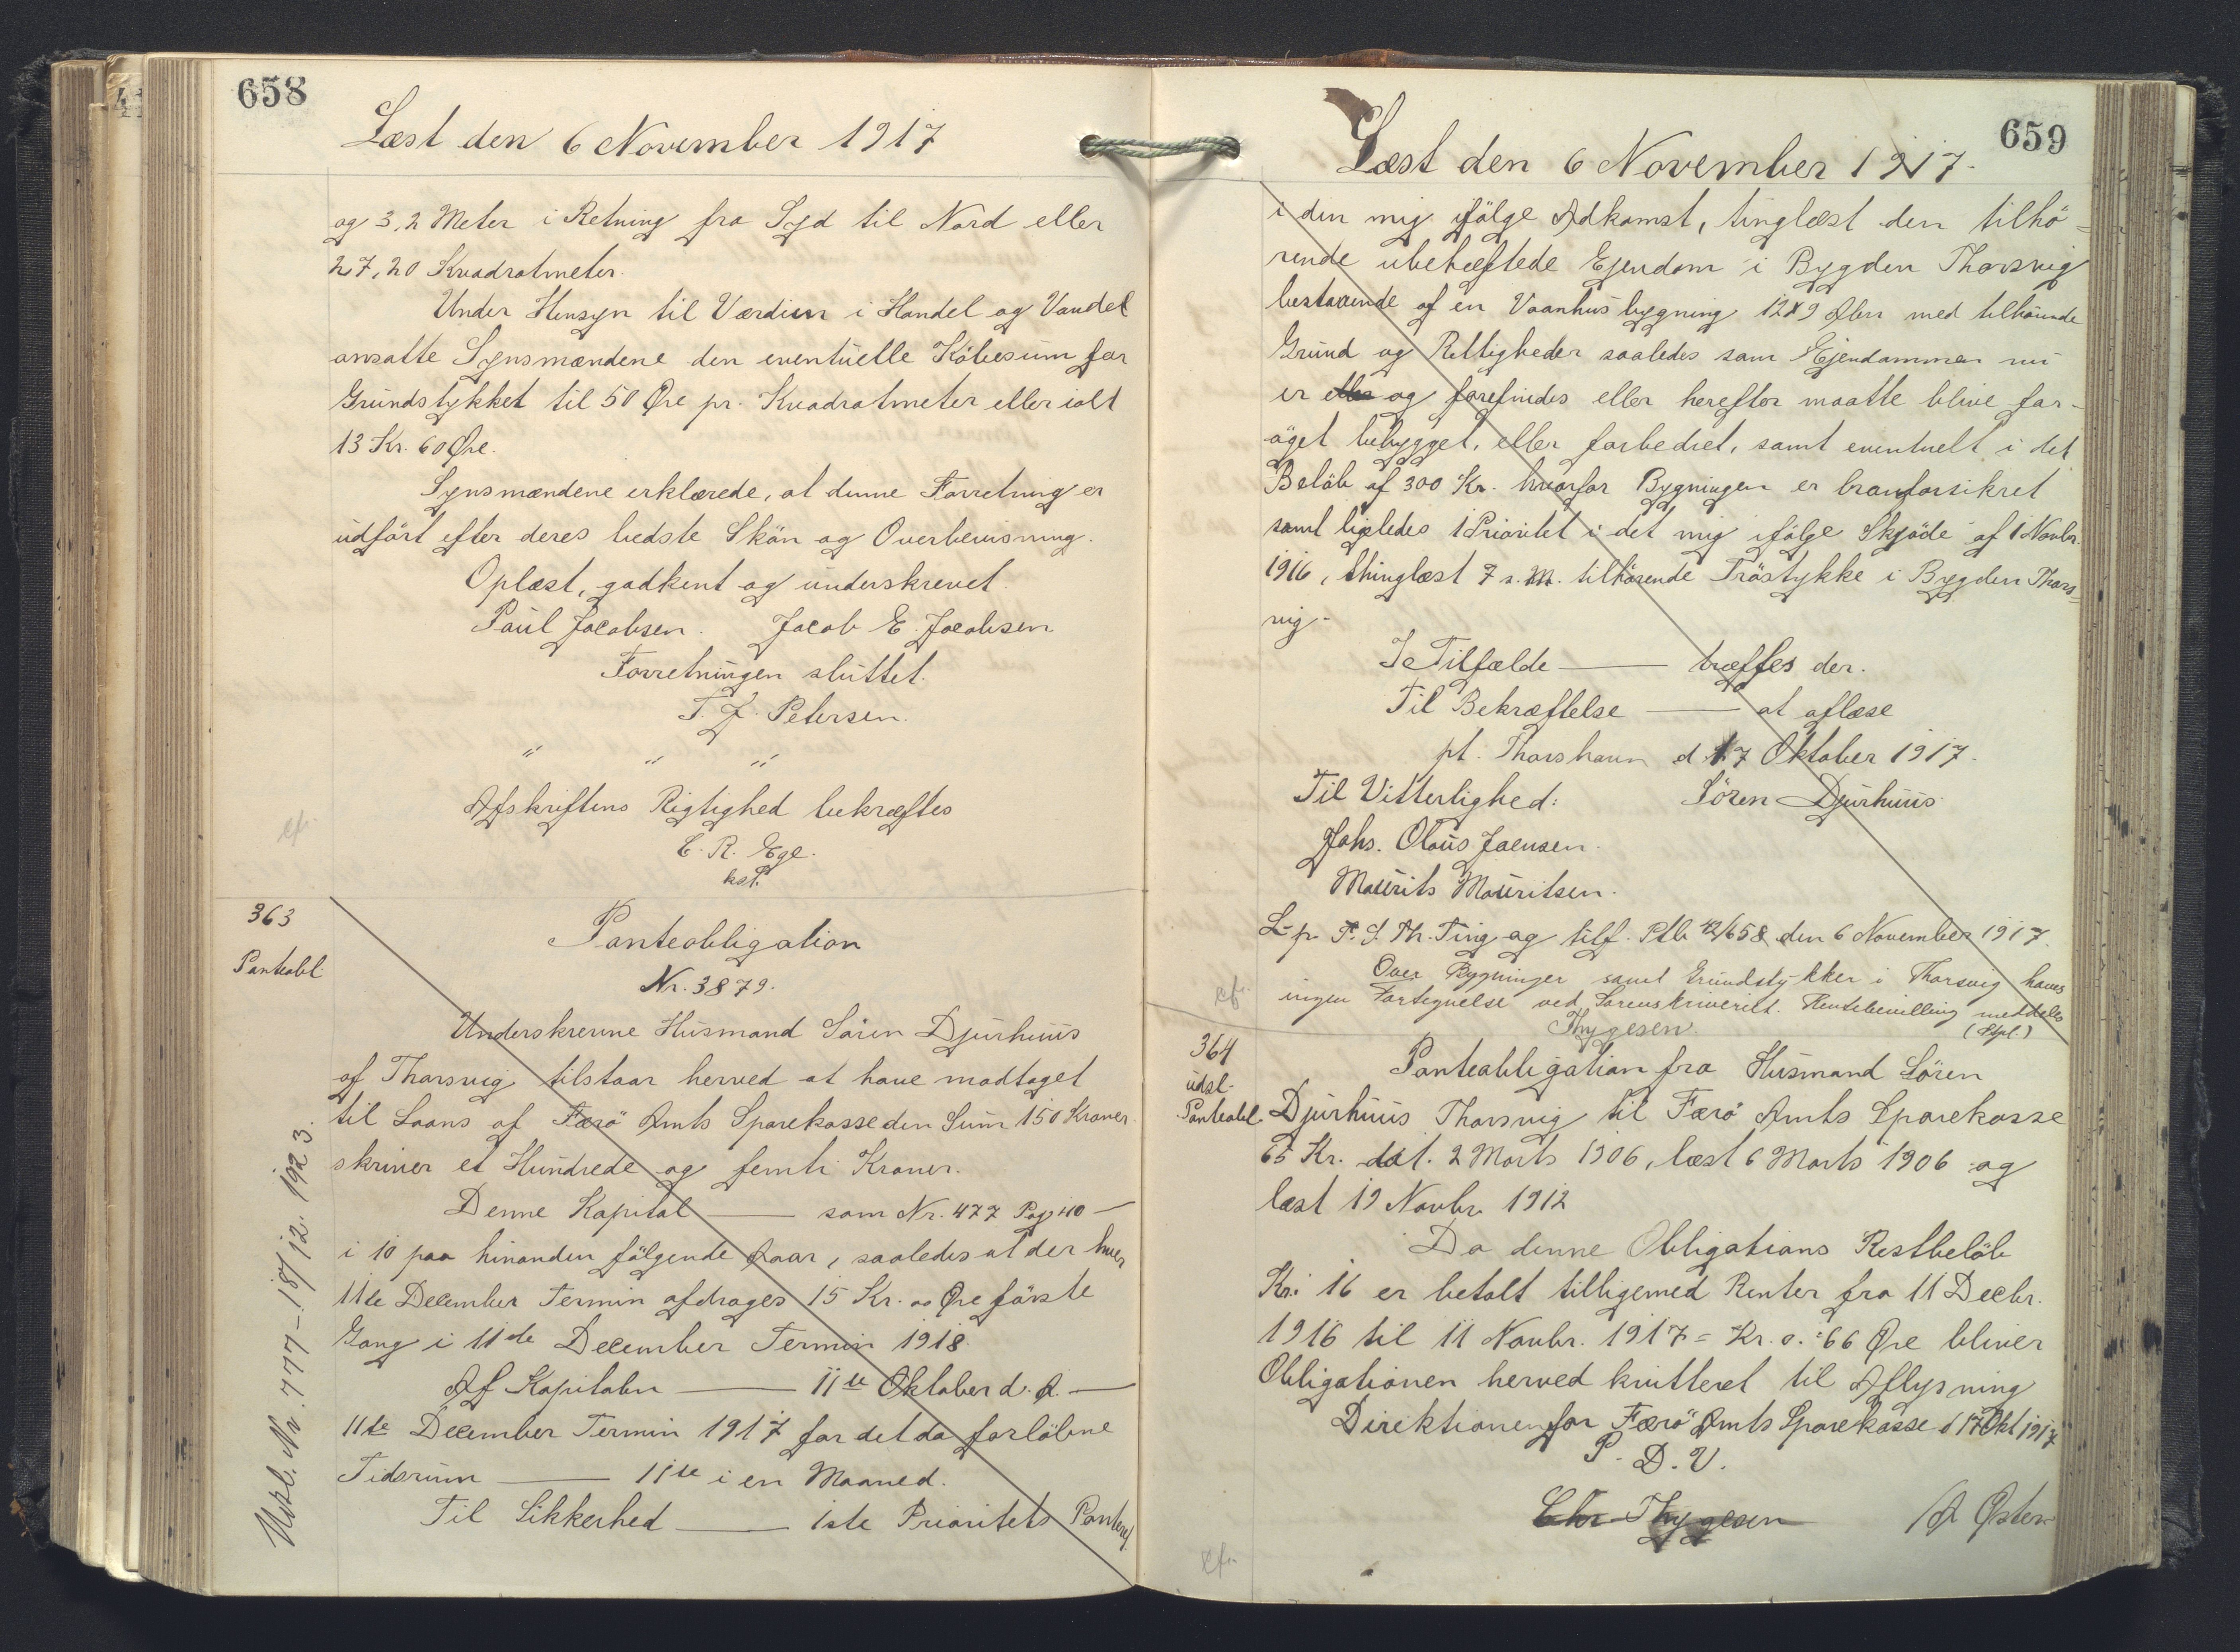 658
Læst den 6 November 1917
og 3,2 Meter i Retning fra Syd til Nord eller
27,20 Kvadratmeter.
Under Hensyn til Værdien i Handel og Vandel
ansatte Synsmændene den eventuelle Købesum for
Grundstykket til 50 Øre pr. Kvadratmeter eller ialt
13 Kr. 60 Øre.
Synsmændene erklærede, at denne Forretning er
udført efter deres bedste Skön og Overbevisning.
Oplæst, godkent og underskrevet.
Paul Jacobsen. Jacob E. Jacobsen
Forretningen sluttet.
T. J. Petersen.
" " "
Afskriftens Rigtighed bekræftes
E. R. Ege.
kst.
cf.
363
Panteobl.
Panteobligation
Nr. 3879.
Underskrevne Husmand Sören Djurhuus
af Thorsvig tilstaar herved at have modtaget
til Laans af Færö Amts Sparekasse den Sum 150 Kroner
skriver et Hundrede og femti Kroner.
Denne Kapital — som Nr. 477 Pag 410 —
i 10 paa hinanden fölgende Aar, saaledes at der hver
11te December Termin afdrages 15 Kr. 00 Øre förste
Gang i 11te December Termin 1918.
Af Kapitalen — 11te Oktober d. A. —
11te December Termin 1917 for det da forlöbne
Tidsrum — 11te i en Maaned.
Til Sikkerhed — 1ste Prioritets Panteret
Udsl. Nr. 777 - 18/12. 1923.
659
Læst den 6 November 1917.
i den mig ifölge Adkomst, tinglæst den tilhö=
rende ubehæftede Ejendom i Bygden Thorsvig
bestaaende af en Vaanhusbygning 12x9 Alen med tilhörende
Grund og Rettigheder saaledes som Ejendommen nu
er eller og forefindes eller herefter maatte blive for-
öget bebygget, eller forbedret, samt eventuelt i det
Belöb af 300 Kr. hvorfor Bygningen er branforsikret
samt ligeledes 1 Prioritet i det mig ifölge Skjöde af 1 Novbr.
1916, thinglæst 7 s. M. tilhörende Tröstykke i Bygden Thors=
vig.
I Tilfælde — træffes der.
Til Bekræftelse — at aflæse
pt. Thorshavn d. 17 Oktober 1917.
Til Vitterlighed: Sören Djurhuus
Johs. Olaus Joensen.
Maurits Mouritsen.
L- p. F. S. Th. Ting og tilf. Ptb. 12/658 den 6 November 1917.
Over Bygninger samt Grundstykker i Thorsvig haves
ingen Fortegnelse ved Sorenskriveriet. Rentebevilling meddeles
Thygesen. (Stpl.)
cf.
364
udsl.
Panteobl.
Panteobligation fra Husmand Sören
Djurhuus Thorsvig til Færö Amts Sparekasse
65 Kr. dat. 2 Marts 1906, læst 6 Marts 1906 og
læst 19 Novbr. 1912
Da denne Obligations Restbelöb
Kr. 16 er betalt tilligemed Renter fra 11 Decbr.
1916 til 11 Novbr. 1917 = Kr. 0. 66 Øre bliver
Obligationen herved kvitteret til Aflysning
Direktionen for Færö Amts Sparekasse d 17 Okt 1917
P. D. V.
Chr Thygesen A Østerø
cf.